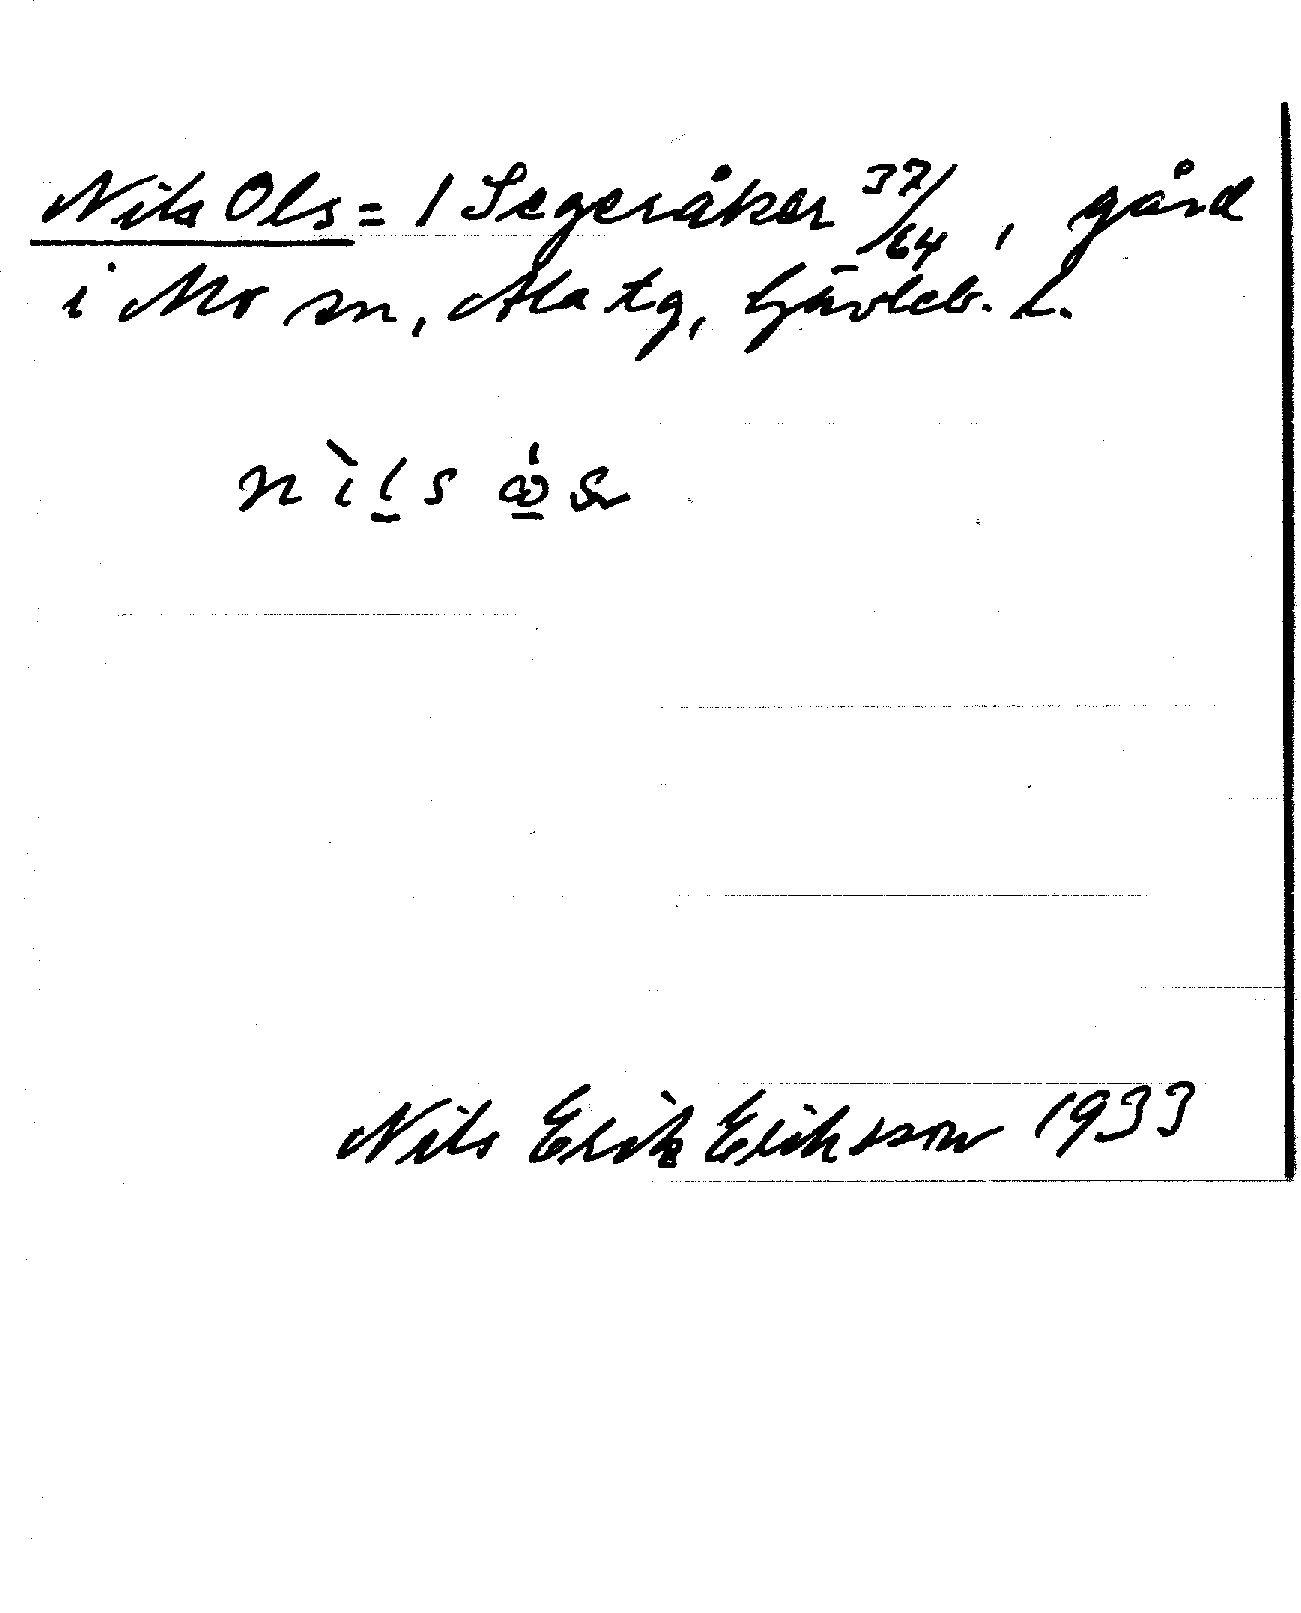 Nils Ols = 1 Segeråker 37/64, gård
i Mo sn, Ala tg, Gävleb. L.
nìls ós
Nils Erik Eriksson 1933